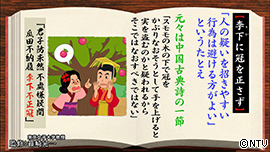 【李下に冠を正さず】
「人の疑いを招きやすい
行為は避ける方がよい」
というたとえ
元々は中国古典詩の一節
スモモの木の下で冠を
かぶりなおそうとして手を上げると
実を盗むのかと疑われるから
そこではなおすべきではない
「君子防未然 不處嫌疑間
瓜田不納履 李下不正冠」
©NTV